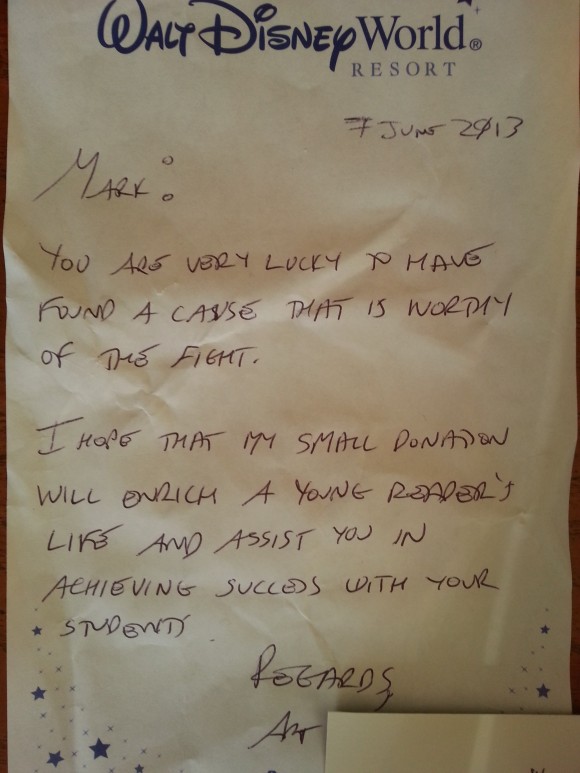 WALT DISNEY World®
RESORT
7 JUNE 2013
MARK:
YOU ARE VERY LUCKY TO HAVE
FOUND A CAUSE THAT IS WORTHY
OF THE FIGHT.
I HOPE THAT MY SMALL DONATION
WILL ENRICH A YOUNG READER'S
LIFE AND ASSIST YOU IN
ACHIEVING SUCCESS WITH YOUR
STUDENTS
REGARDS,
ART